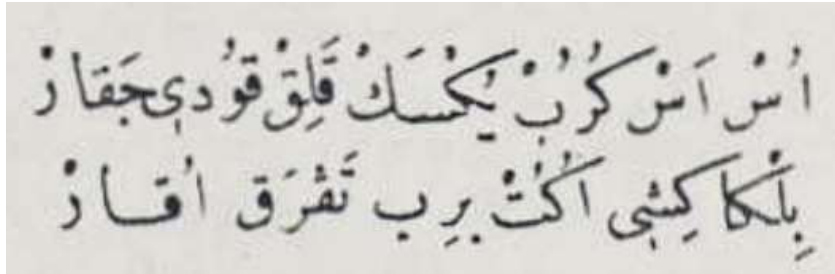 اُسْ اَسْ كُرُبْ يُكْسَكْ قَلِقْ قوُدى جَقارْ
بِلْكا كِشى اُكُتْ بِرِب تَڤْرَق اُقارْ